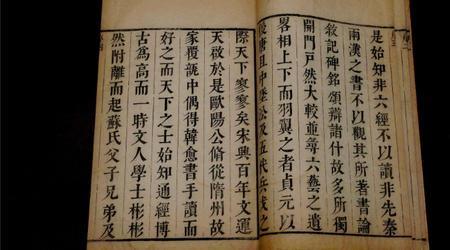 是始知非六經不以讀非先秦
兩漢之書不以觀其所著書論
敘記碑銘頌辯諸什故多所獨
開門戶然大較並尋六藝之遺
畧相上下而羽翼之者貞元以
後唐且中墜沿及五代兵戈之
際天下寥寥矣宋興百年文運
天啟於是歐陽公脩從隋州故
家覆瓿中偶得韓愈書手讀而
好之而天下之士始知通經博
古為高而一時文人學士彬彬
然附離而起蘇氏父子兄弟及